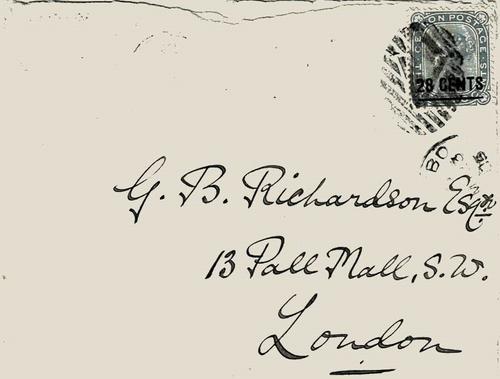 CEYLON POSTAGE
28 CENTS
BO
G. B. Richardson Esqre
13 Pall Mall, S.W.
London